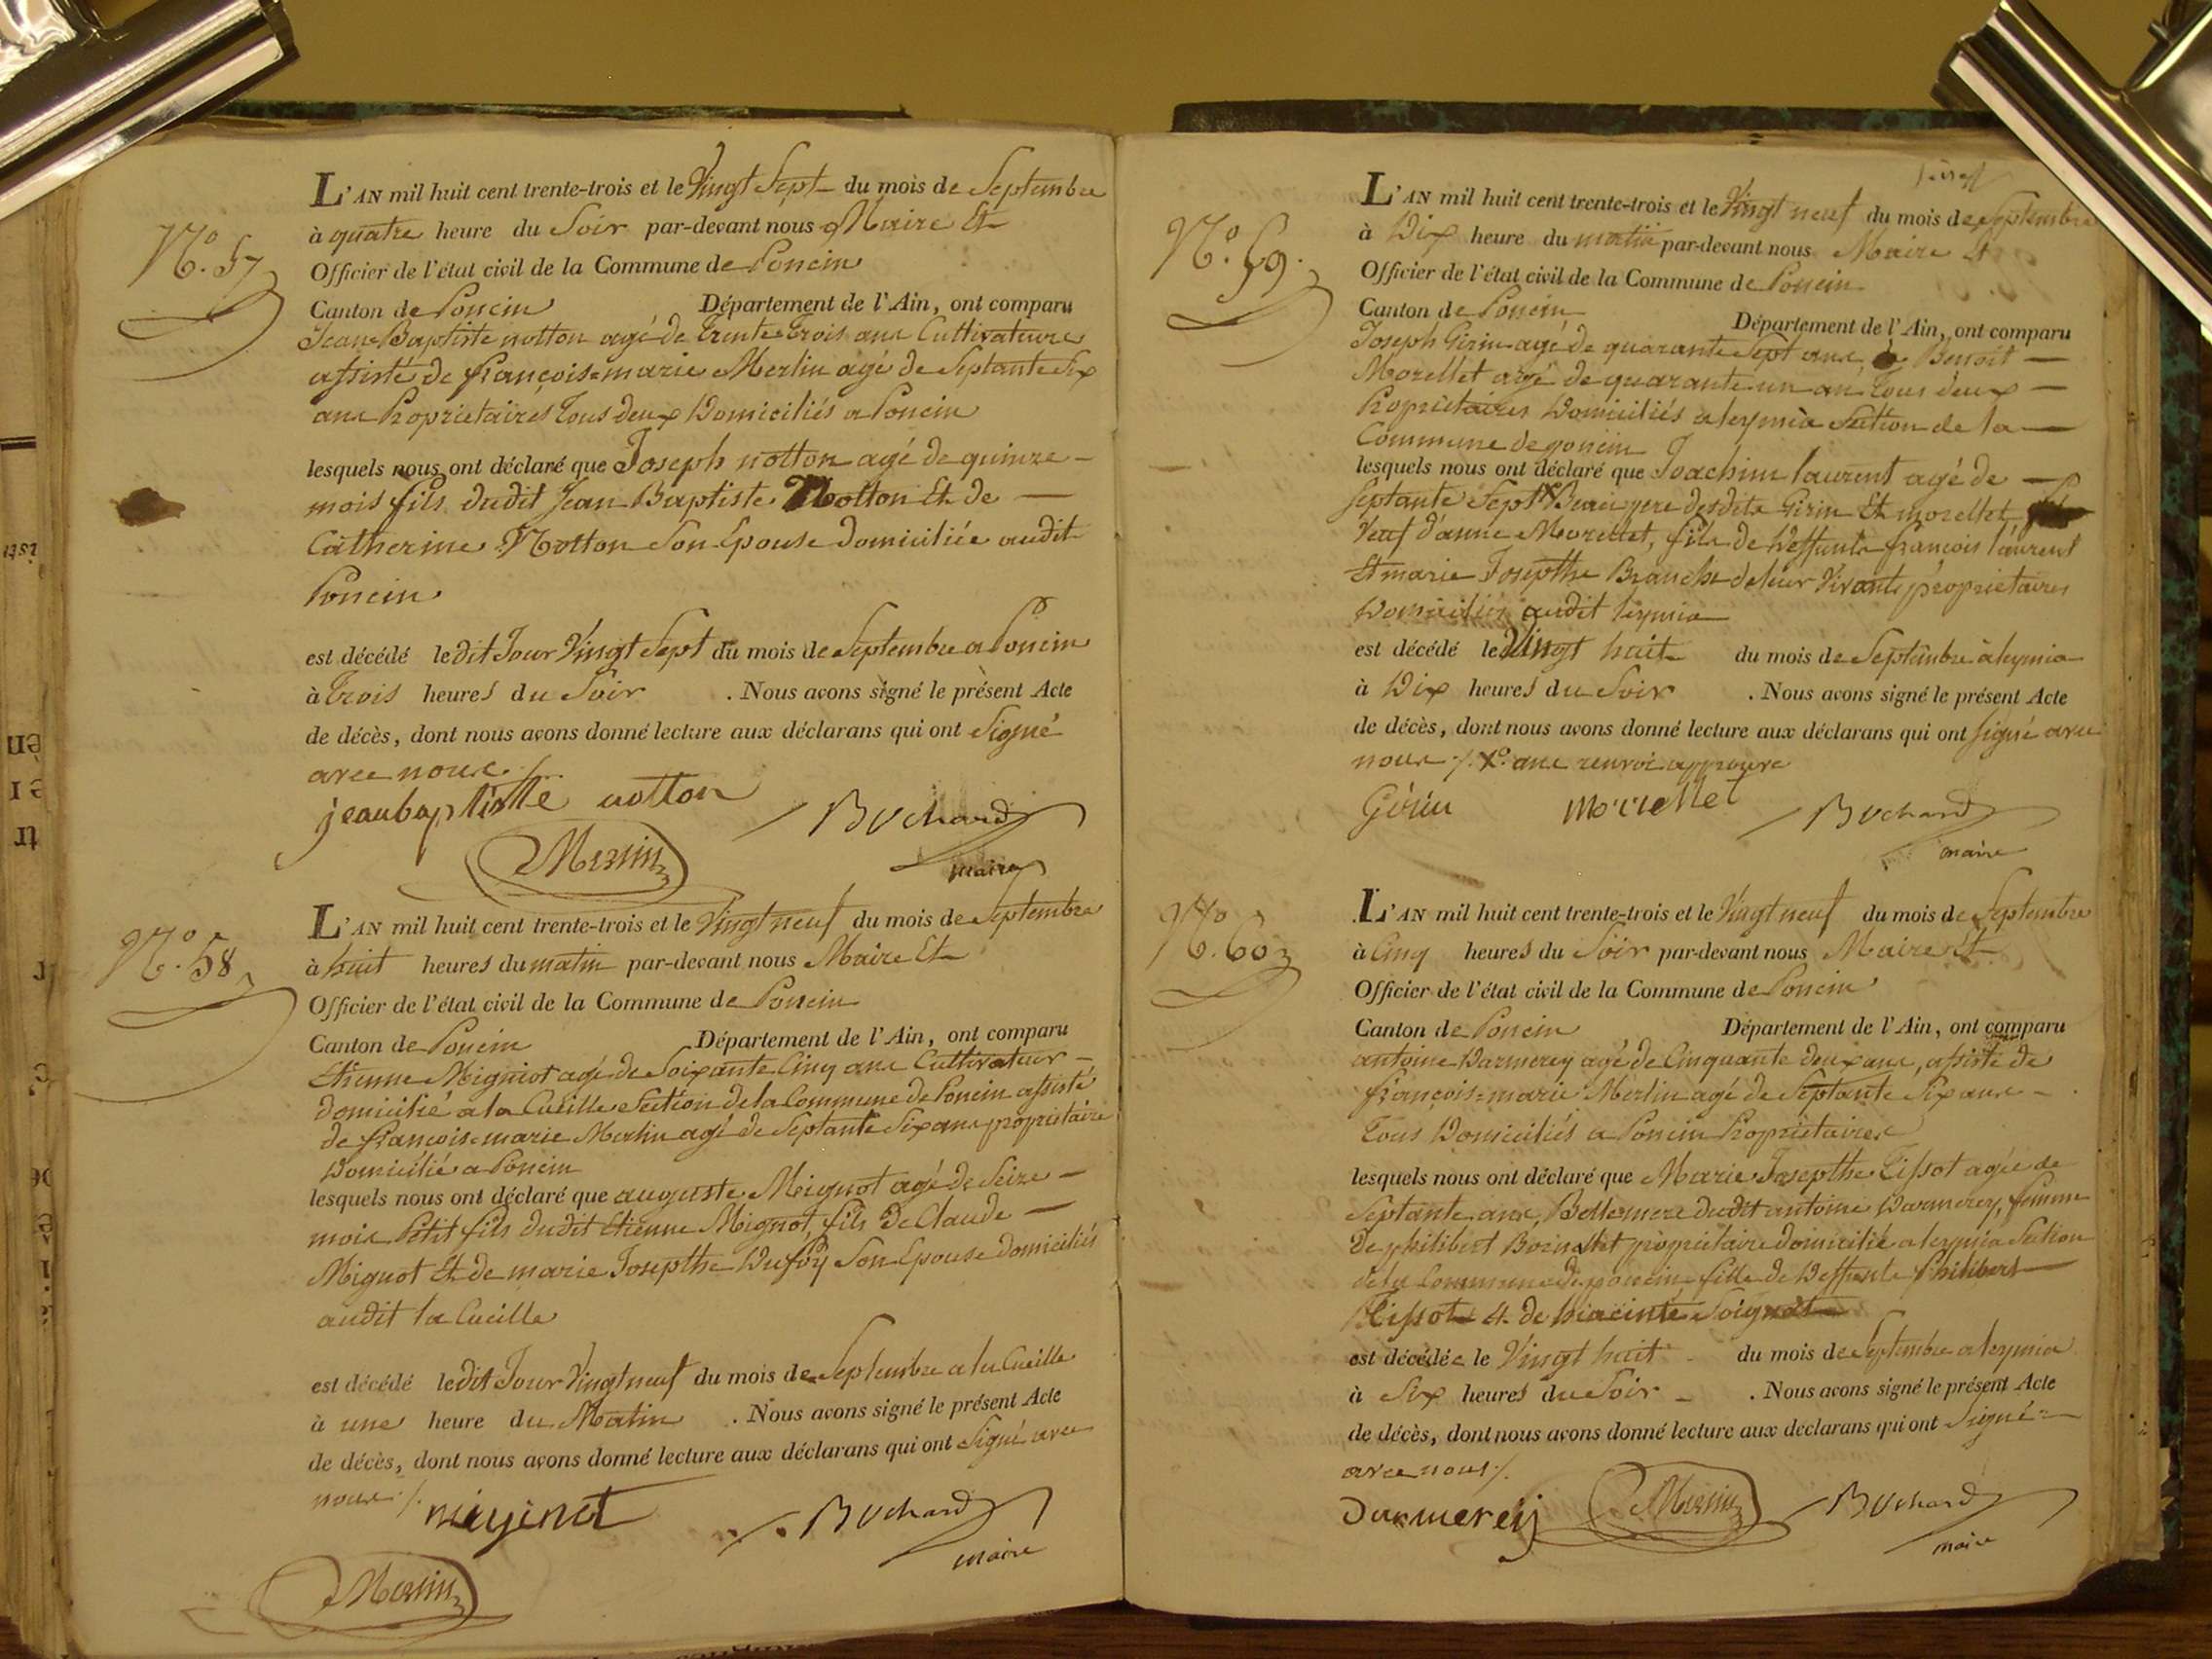 N.º 57
L'AN mil huit cent trente-trois et le Vingt Sept du mois de Septembre
à quatre heure du Soir par-devant nous Maire Et
Officier de l'état civil de la Commune de Poncin
Canton de Poncin Département de l'Ain, ont comparu
Jean Baptiste notton agé de Trente Trois ans Cultivateur
assisté de françois=marie Merlin agé de Septante Six
ans Propriétaires Tous deux Domiciliés a Poncin
lesquels nous ont déclaré que Joseph notton agé de quinze
mois fils dudit Jean Baptiste Notton Et de
Catherine Notton Son Epouse domiciliée audit
Poncin
est décédé le dit Jour Vingt Sept du mois de Septembre a Poncin
à Trois heures du Soir . Nous avons signé le présent Acte
de décès, dont nous avons donné lecture aux déclarans qui ont Signé
avec nous ./.
jeanbaptiste notton
Buchard
Merlin
maire
N.º 58
L'AN mil huit cent trente-trois et le Vingt neuf du mois de Septembre
à huit heures du matin par-devant nous Maire Et
Officier de l'état civil de la Commune de Poncin
Canton de Poncin Département de l'Ain, ont comparu
Etienne Migniot agé de Soixante Cinq ans Cultivateur
domicilié a la Cueille Section de la Commune de Poncin assisté
de françois=marie Merlin agé de Septante Six ans propriétaire
Domicilié a Poncin
lesquels nous ont déclaré que auguste Mignot agé de Seize
mois Petit fils dudit Etienne Mignot, fils De Claude
Mignot Et de marie Josepthe Dufoy Son Epouse domiciliés
audit la Cueille
est décédé le dit Jour Vingt neuf du mois de Septembre a la Cueille
à une heure du Matin . Nous avons signé le présent Acte
de décès, dont nous avons donné lecture aux déclarans qui ont Signé avec
nous ./.
Buchard
maire
Merlin
N.º 59.
L'AN mil huit cent trente-trois et le Vingt neuf du mois de Septembre
à Dix heure du matin par-devant nous Maire Et
Officier de l'état civil de la Commune de Poncin
Canton de Poncin Département de l'Ain, ont comparu
Joseph Girin agé de quarante Sept ans, Benoit
Morellet agé de quarante un an Tous deux
Propriétaires Domiciliés a leymia Section de la
Commune de poncin
lesquels nous ont déclaré que Joachim laurent agé de
Septante Sept X Beau pere desdits Girin Et morellet
Veuf d'anne Morellet, fils de Deffunts françois laurent
Et marie Josepthe Branche de leur Vivants propriétaires
Domiciliés audit leymia
est décédé le Vingt huit du mois de Septembre à leymia
à Dix heures du Soir . Nous avons signé le présent Acte
de décès, dont nous avons donné lecture aux déclarans qui ont Signé avec
nous ./. Xº ans renvoi approuvé
Girin
Morellet
Buchard
maire
Nº. 60
L'AN mil huit cent trente-trois et le Vingt neuf du mois de Septembre
à Cinq heures du Soir par-devant nous Maire Et
Officier de l'état civil de la Commune de Poncin
Canton de Poncin Département de l'Ain, ont comparu
antoine Darmerey agé de Cinquante deux ans, assisté de
françois=marie Merlin agé de Septante Six ans
Tous Domiciliés a Poncin Propriétaires
lesquels nous ont déclaré que Marie Josepthe Tissot agée de
Septante ans, Bellemere dudit antoine Darmerey, femme
De philibert propriétaire domicilié a leymia Section
de la Commune de poncin fille de Deffunts Philibert
Tissot & de hiacinte Soignat
est décédée le Vingt huit du mois de Septembre a leymia
à Six heures du Soir . Nous avons signé le présent Acte
de décès, dont nous avons donné lecture aux declarans qui ont Signé
avec nous ./.
Darmerey
Merlin
Buchard
maire